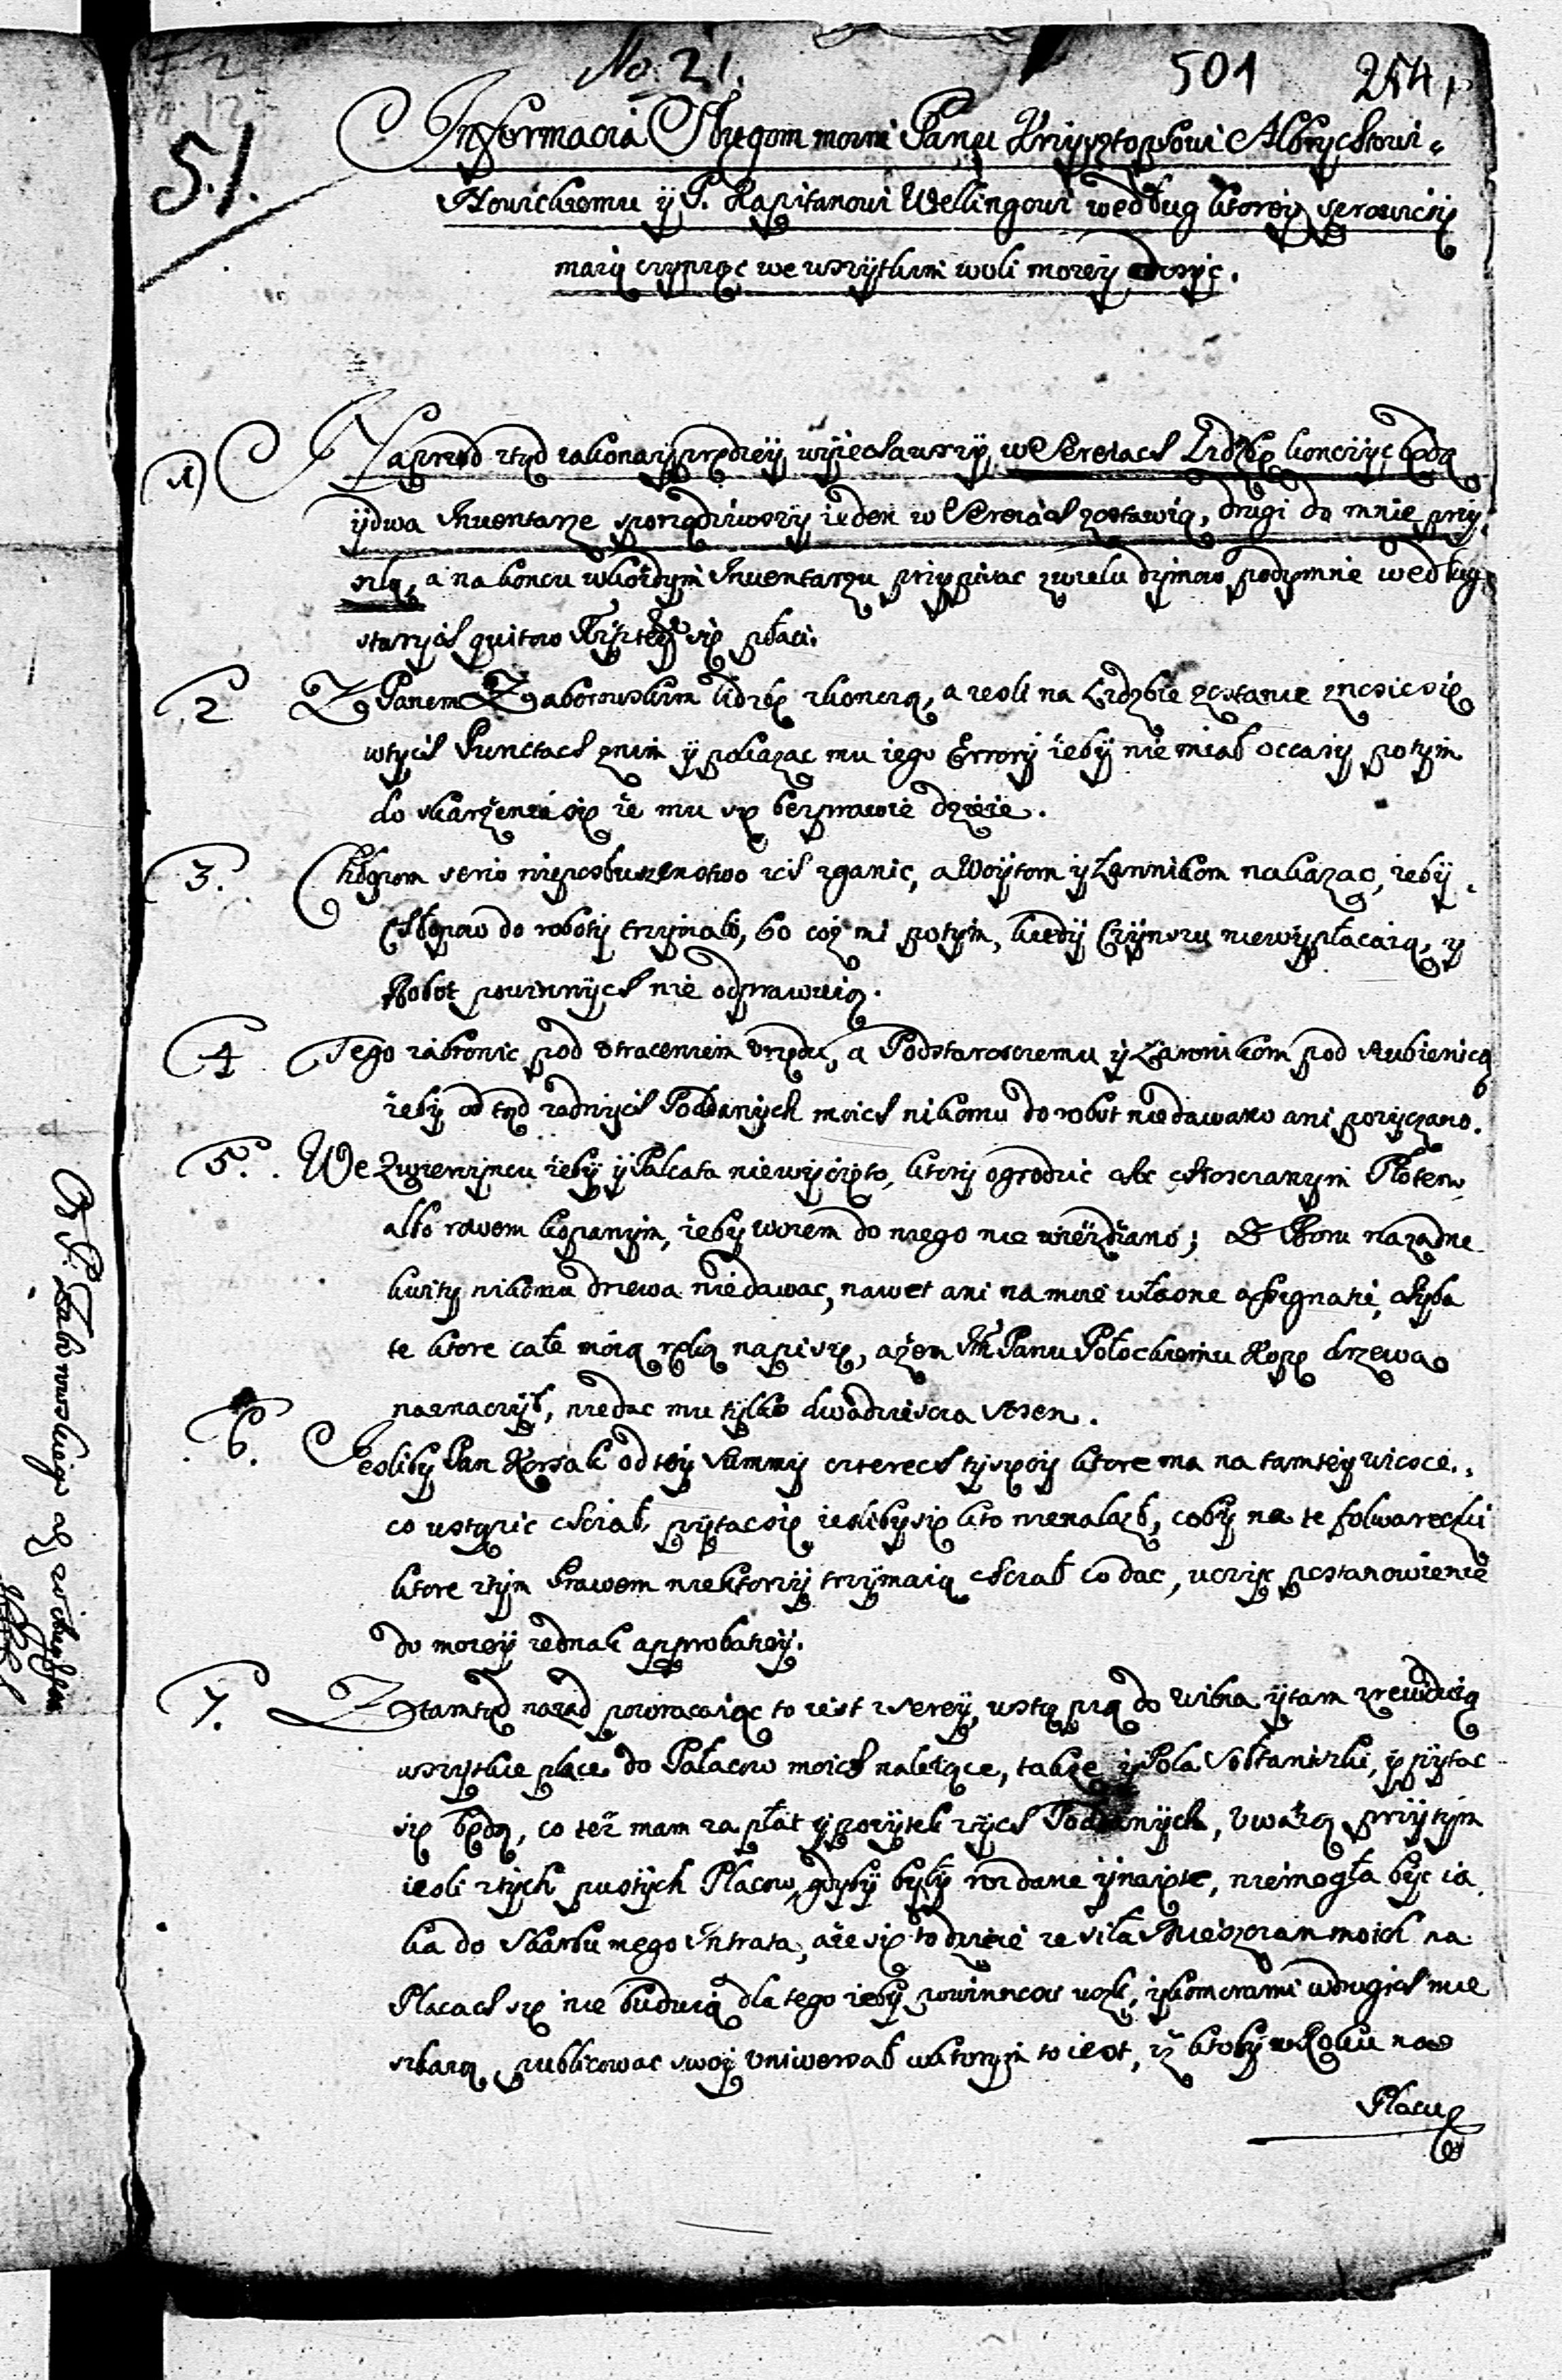 No. 21.
501 254
51.
Informacia Sługom moim Panu Krzysztophowi Albrychtowi
Nowickiemu y P. Kapitanowi Wellingowi według ktorey sprawicsię
maią czyniąc we wszytkim woli moiey dosyc.
1) Naprzod ztąd iakonayprędzey wyiechawszy, w Sereiach Lidzbę konczyc będą
y dwa Inuentarze sporządziwszy ieden w Sereiach zostawią, drugi do mnie przy-
szlą, a na koncu wkożdym Inuentarzu przypisac zwielu dymow podymnie według
starych quitow Rzptey się płaci.
2 Z Panem Zaborowskim lidzbę skonczą, a iesli na Lidzbie zostanie znescsię
wtych Punctach znim y pokazac mu iego Errory żeby nie miał occasy potym
do skarżenia się że mu się bezprawie dzieie.
3. Chłopom serio nieposłuszenstwo ich zganic, a Woytom y Ławnikom nakazac, żeby
Chłopow do roboty trzymali, bo coż mi potym, kiedy Czynszu niewypłacaią, y
Robot powinnych nie odprawuią.
4 Tego zabronic pod vtraceniem vrzędu, a Podstarosciemu y Ławnikom pod szubienicą
żeby od tąd żadnych Poddanych moich nikomu do robot niedawano ani pozyczano.
5. We Zwierzyncu żeby y Palcata niewycięto, ktory ogrodzic abo chroscianym Płotem
albo rowem kopanym, żeby wozem do niego nie wieżdżano; Z Boru nażadne
kwity nikomu drzewa niedawac, nawet ani na moie własne assignatie, chyba
te ktore całe moią ręką napiszę, ażem Jm Panu Połockiemu Kopę drzewa
naznaczył, niedac mu tylko dwadziescia sosen.
6. Iesliby Pan Korsak od tey summy czterech tysięcy ktore ma na tamtey wiosce,
co ustąpic chciał, pytacsię iesliby się kto nienalazł, coby na te folwareczki
ktore ztym Prawem niektorzy trzymaią chciał co dac, uczyc postanowienie
do moiey iednak approbatiey.
7. Ztamtąd nazad powracaiąc to iest z Serey, wstąpią do Wilna y tam zrewiduią
wszytkie place do Pałacow moich nalezące, także y Pola Sołtaniszki, y pytac
się będą, co też mam za płat y pozytek ztych Poddanych, vważą przytym
iesli ztych pustych Placow, gdyby były rozdane ynaięte, niemogła byc ia
ka do Skarbu mego Intrata, a że się to dzieie że siła Mieszczan moich na
Placach się nie buduią dla tego żeby powinnosci uszli, y komorami w drugich mie
szkaią, publicowac swoy vniwersał w ktorym to iest, iż ktoby w Roku na
Placu